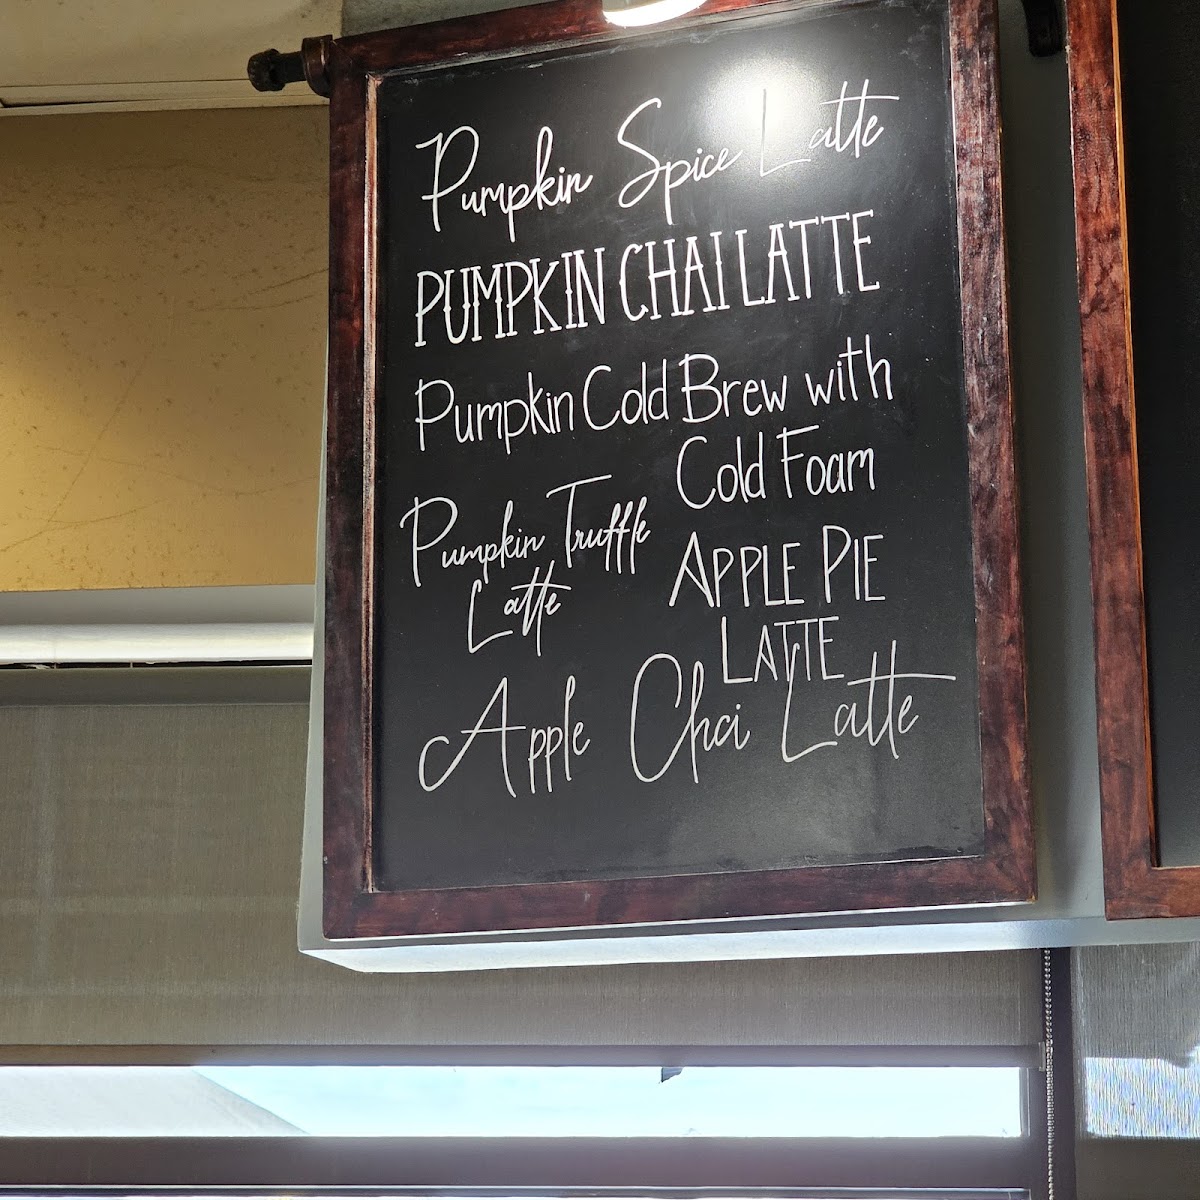 Pumpkin Spice Latte
PUMPKIN CHAI LATTE
Pumpkin Cold Brew with
Cold Foam
Pumpkin Truffle
Latte
APPLE PIE
LATTE
Apple Chai Latte